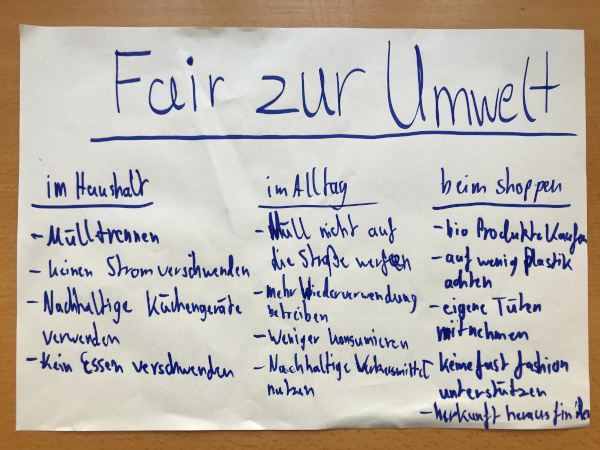 Fair zur Umwelt
im Haushalt
- Mülltrennen
- keinen Strom verschwenden
- Nachhaltige Küchengeräte
verwenden
- Kein Essen verschwenden
im Alltag
- Müll nicht auf
die Straße werfen
- mehr Wiederverwendung
betreiben
- weniger konsumieren
- Nachhaltige Verkersmittel
nutzen
beim shoppen
- bio Produkte kaufen
- auf wenig plastik
achten
- eigene Tüten
mitnehmen
- keine fast fashion
unterstützen
- herkunft herausfinden